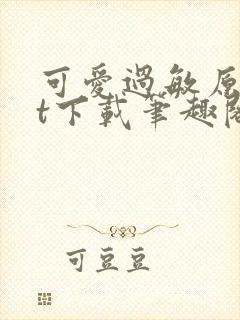 可愛過敏原
t下載筆趣閣
可豆豆